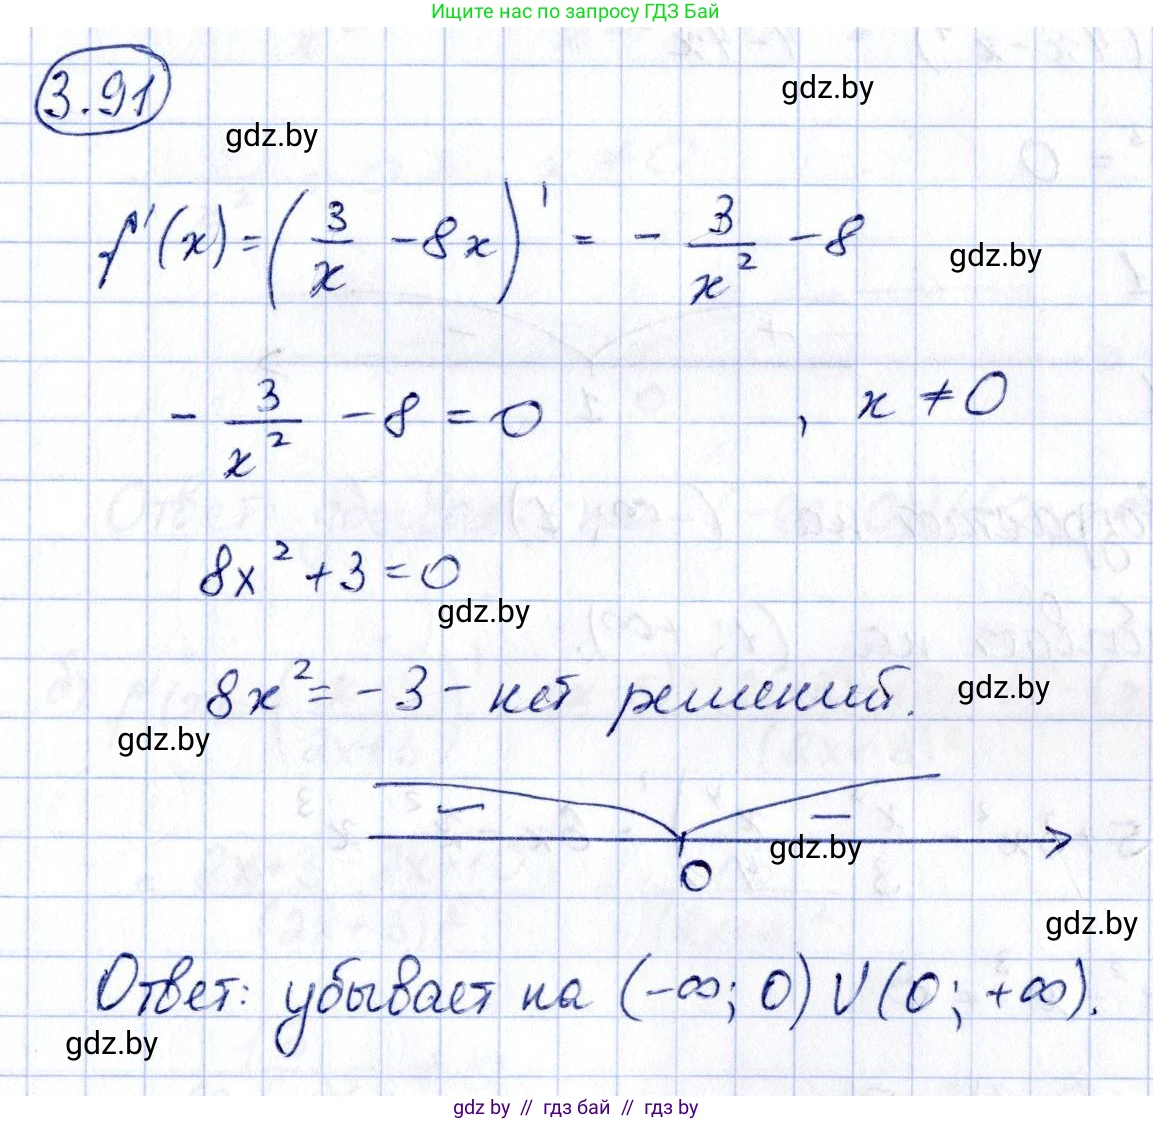 Ищите нас по запросу ГДЗ Бай
3.91
gdz.by
gdz.by
f'(x) = (3/x - 8x)' = - 3/x² - 8
gdz.by
- 3/x² - 8 = 0 , x ≠ 0
8x² + 3 = 0
gdz.by
8x² = -3 - нет решений.
gdz.by
gdz.by
- -
gdz.by
0
gdz.by
Ответ: убывает на (-∞; 0) U (0; +∞).
gdz.by
gdz by // гдз бай // гдз by